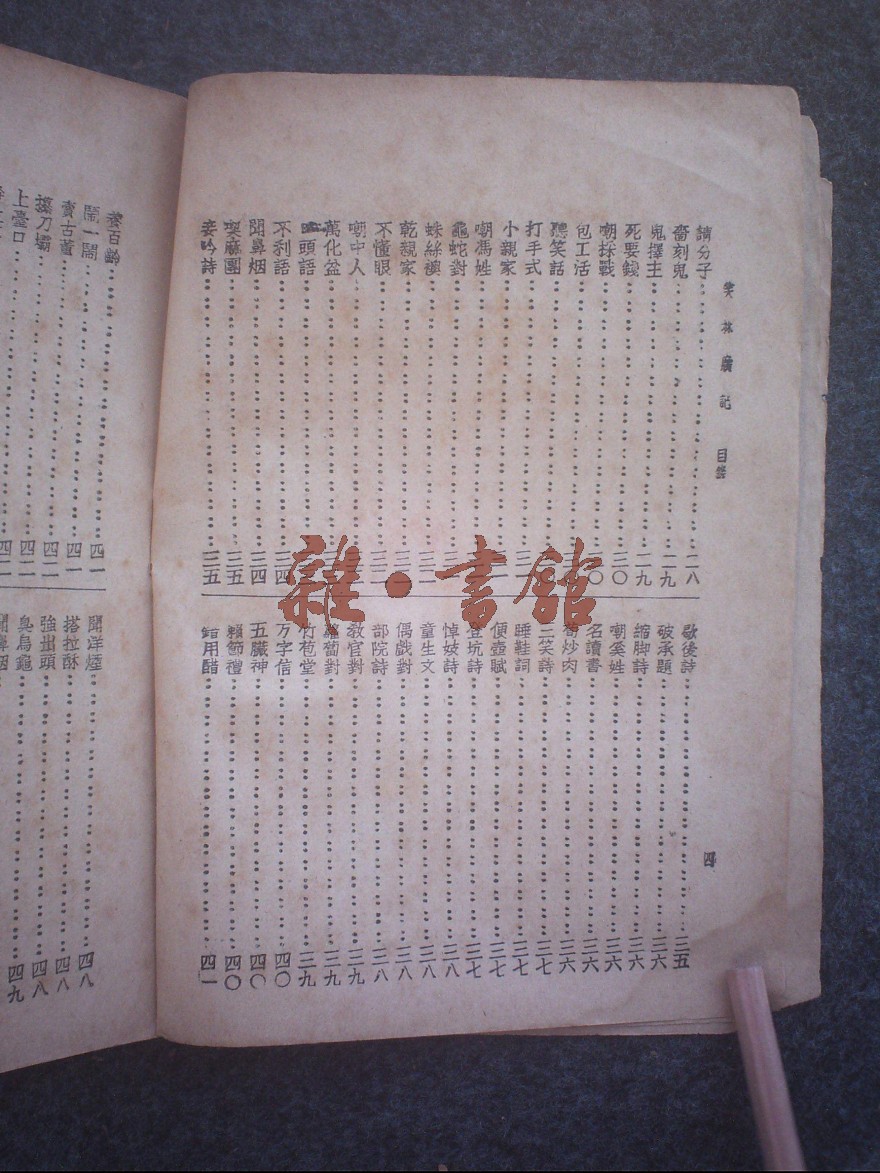 笑林廣記 目錄
四
請分子 二八
嗇刻鬼 二九
鬼擇主 二九
死要錢 二九
嘲採戰 三〇
包工活
聽笑話
打手式
小親家
嘲馮姓
龜蛇對
蛛絲襖
乾親家
不懂眼
嘲中人
萬化盆
頭語
不利語 三四
聞鼻烟 三四
喫麻團 三五
妾吟詩 三五
歇後詩 三五
破承題 三六
縮脚詩 三六
嘲奚姓 三六
名讀書 三六
筍炒肉 三六
三笑詩 三七
睡鞋詞 三七
便壺賦 三七
登坑詩 三七
悼妓詩 三八
童生文 三八
偶戲對 三八
部院詩 三八
教官對 三九
蘿蔔對 三九
竹苞堂 三九
万字信 四〇
五臟神 四〇
賴節禮 四〇
錯用醋 四一
百齡 四一
鬧一鬧 四一
賣古董 四一
攮刀壩 四二
上臺口 四二
聞洋煙 四八
搭拉酥 四八
強出頭 四八
臭烏龜 四九
雜·書館